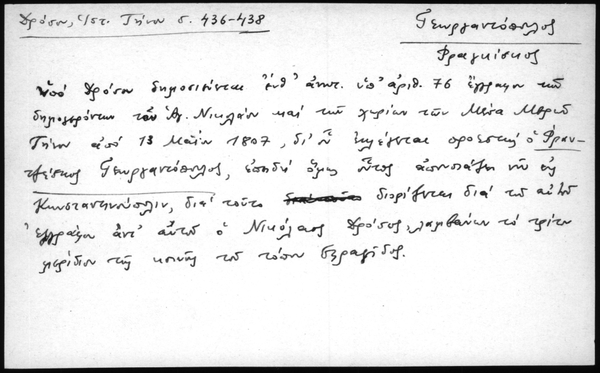 Δρόσου, Ἱστ. Τήνου σ. 436-438
Γεωργαντόπουλος
Φραγκίσκος
Ὑπό Δρόσου δημοσιεύεται ἔνθ' ἀνωτ. ὑπ' ἀριθ. 76 ἔγγραφον τῶν
δημογερόντων τοῦ Ἁγ. Νικολάου καί τῶν χωρίων τῶν Μέσα Μερῶν
Τήνου ἀπό 13 Μαΐου 1807, δι' οὗ ἐκλέγεται προεστώς ὁ Φραν-
τζέσκος Γεωργαντόπουλος, ἐπειδή ὅμως οὗτος ἀπουσιάζει νῦν εἰς
Κωνσταντινούπολιν, διά τοῦτο διορίζεται διά τοῦ αὐτοῦ
ἐγγράφου ἀντ' αὐτοῦ ὁ Νικόλαος Δρόσος, λαμβάνων τό τρίτον
μερίδιον τῆς κοινῆς τοῦ τόπου σφραγίδος.